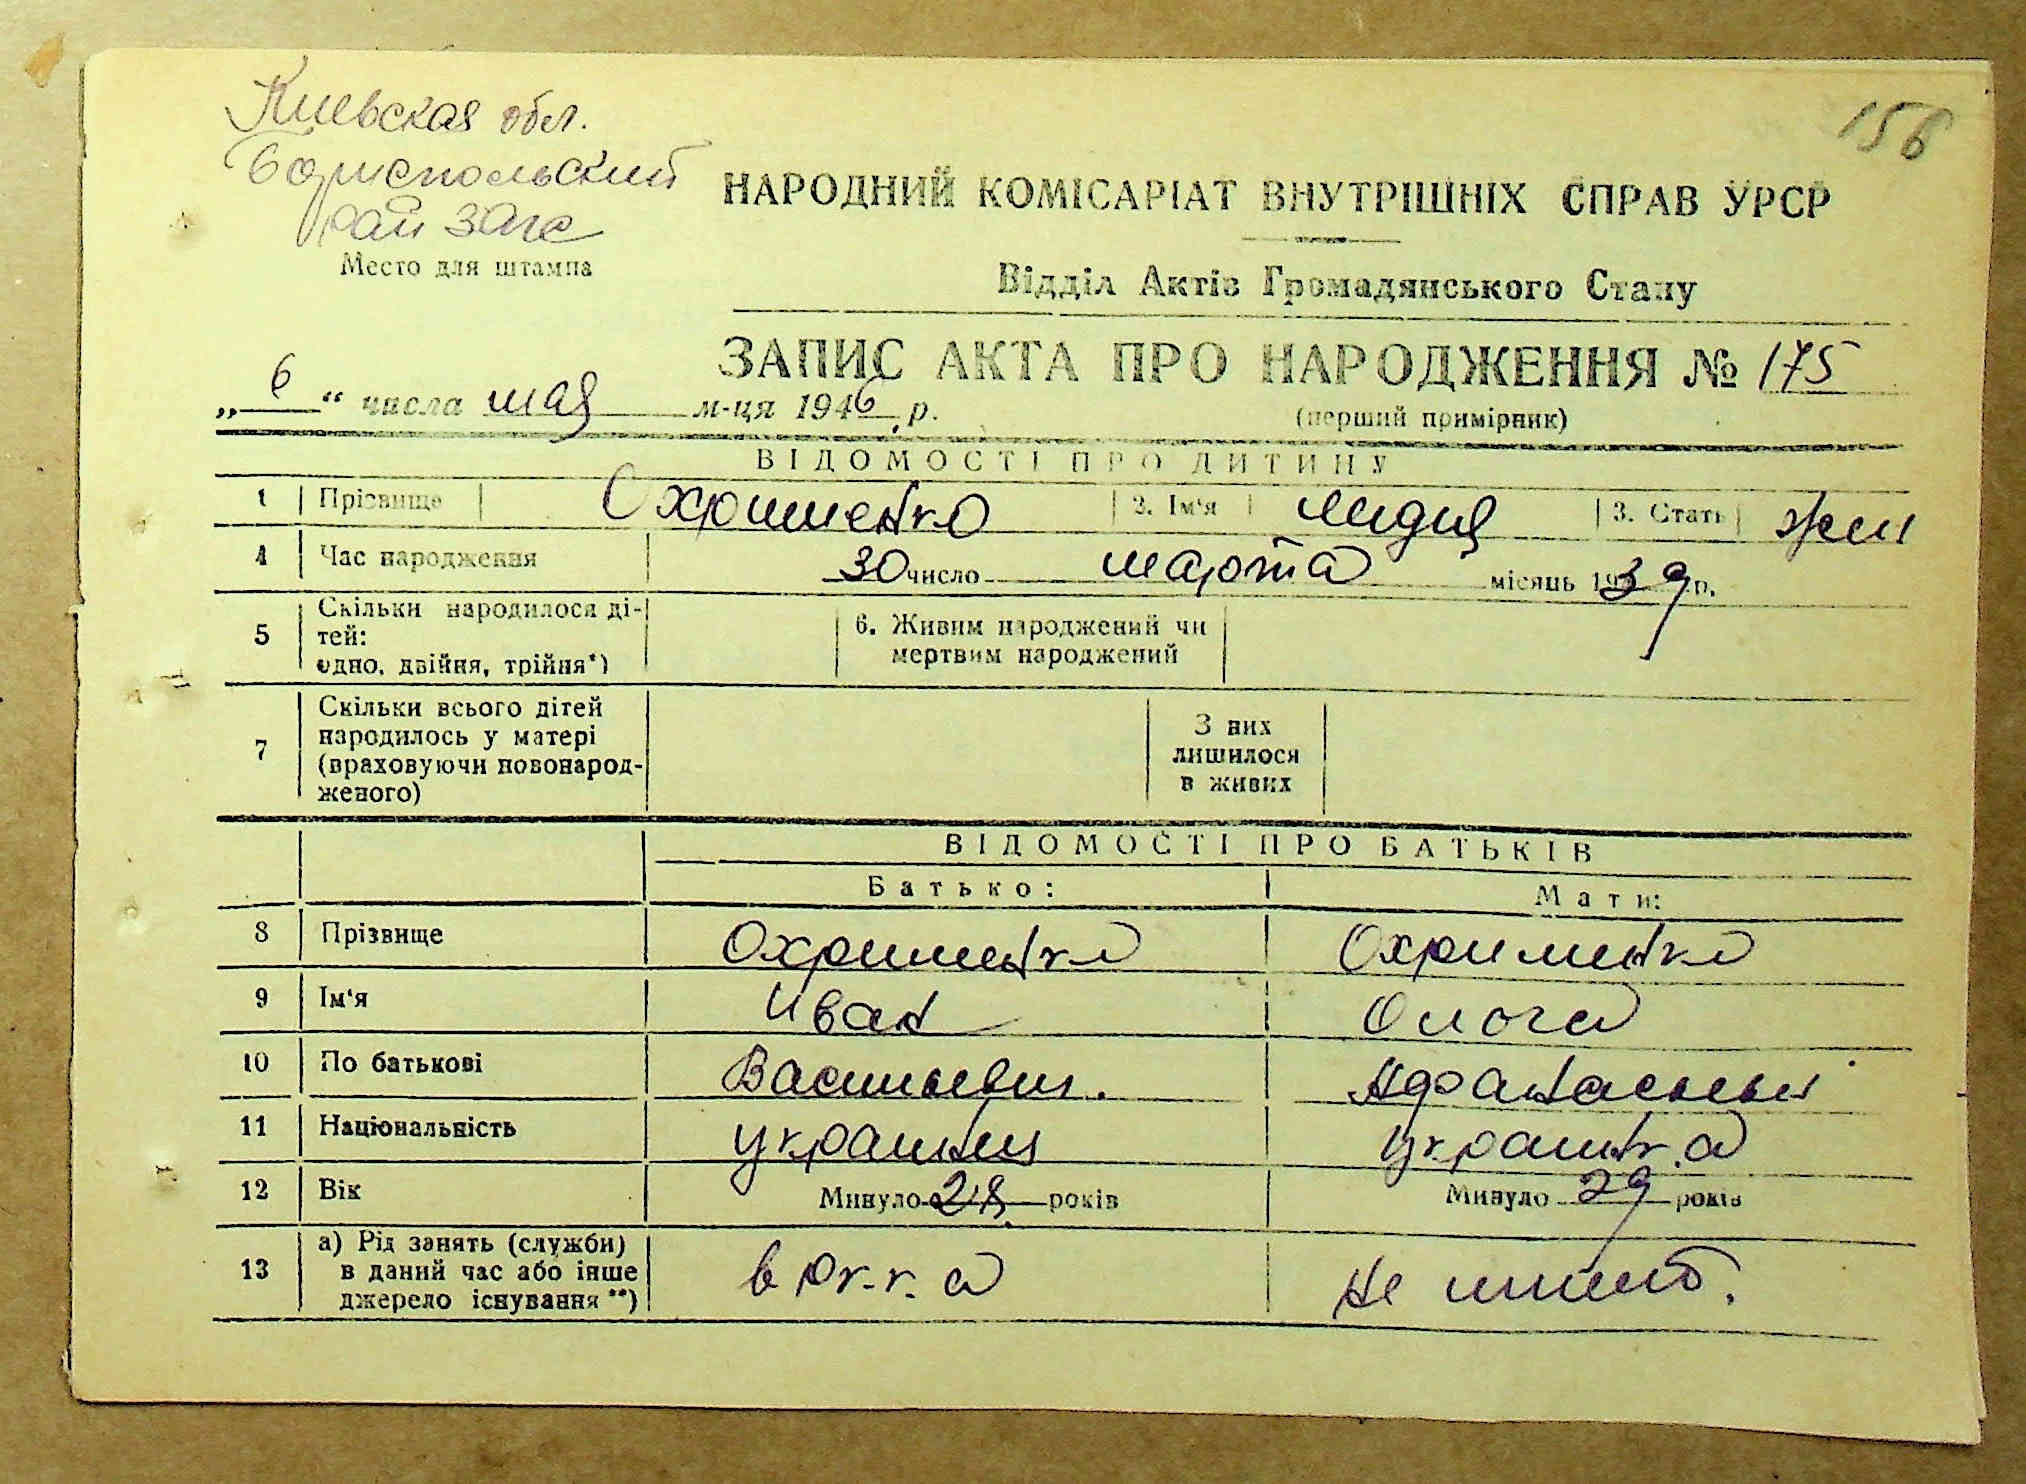 Киевская обл.
156
Бориспольский
рай загс
НАРОДНИЙ КОМІСАРІАТ ВНУТРІШНІХ СПРАВ УРСР
Место для штампа
Відділ Актів Громадянського Стану
ЗАПИС АКТА ПРО НАРОДЖЕННЯ № 175
„6“ числа мая м-ця 1946 р.
(перший примірник)
ВІДОМОСТІ ПРО ДИТИНУ
1 Прізвище Охрименко 2. Ім'я Лидия 3. Стать жен
4 Час народження 30 число марта місяць 1939 р.
5 Скільки народилося ді-
тей:
одно, двійня, трійня*)
6. Живим народжений чи
мертвим народжений
7 Скільки всього дітей
народилось у матері
(враховуючи новонарод-
женого)
З них
лишилося
в живих
ВІДОМОСТІ ПРО БАТЬКІВ
Батько: Мати:
8 Прізвище Охрименко Охрименко
9 Ім'я Иван Ольга
10 По батькові Васильевич. Афанасьевн
11 Національність украинец украинка
12 Вік Минуло 28 років Минуло 29 років
13 а) Рід занять (служби)
в даний час або інше
джерело існування **)
в рк.к.а
Не имеет.